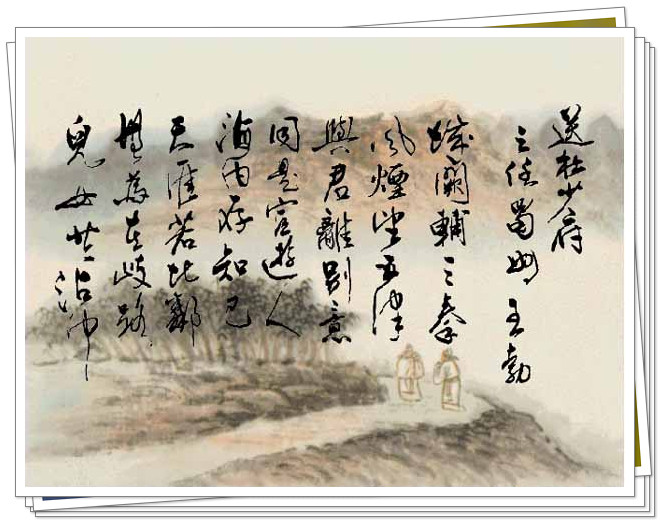 送杜少府
之任蜀州 王勃
城阙輔三秦
风煙望五津
與君離别意
同是宦遊人
海内存知己
天涯若比鄰
無為在歧路
兒女共沾巾